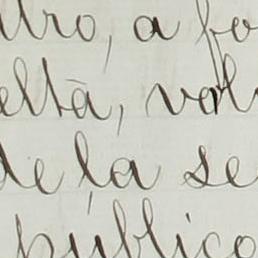 tro, a fo
eltà, vol
de la se
público